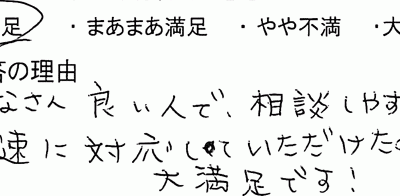 足 ・まあまあ満足 ・やや不満 ・大
答の理由
なさん 良い人で、相談しやす
速に対応していただけた
大満足です！